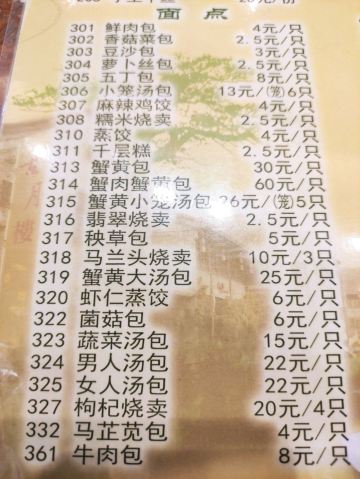 面点
301 鲜肉包 4元/只
302 香菇菜包 2.5元/只
303 豆沙包 3元/只
304 萝卜丝包 2.5元/只
305 五丁包 8元/只
306 小笼汤包 13元/(笼)6只
307 麻辣鸡饺 4元/只
308 糯米烧卖 2.5元/只
310 蒸饺 4元/只
311 千层糕 2.5元/只
313 蟹黄包 30元/只
314 蟹肉蟹黄包 60元/只
315 蟹黄小笼汤包 26元/(笼)5只
316 翡翠烧卖 2.5元/只
317 秧草包 5元/只
318 马兰头烧卖 10元/3只
319 蟹黄大汤包 25元/只
320 虾仁蒸饺 6元/只
322 菌菇包 6元/只
323 蔬菜汤包 15元/只
324 男人汤包 22元/只
325 女人汤包 22元/只
327 枸杞烧卖 20元/4只
332 马芷苋包 4元/只
361 牛肉包 8元/只